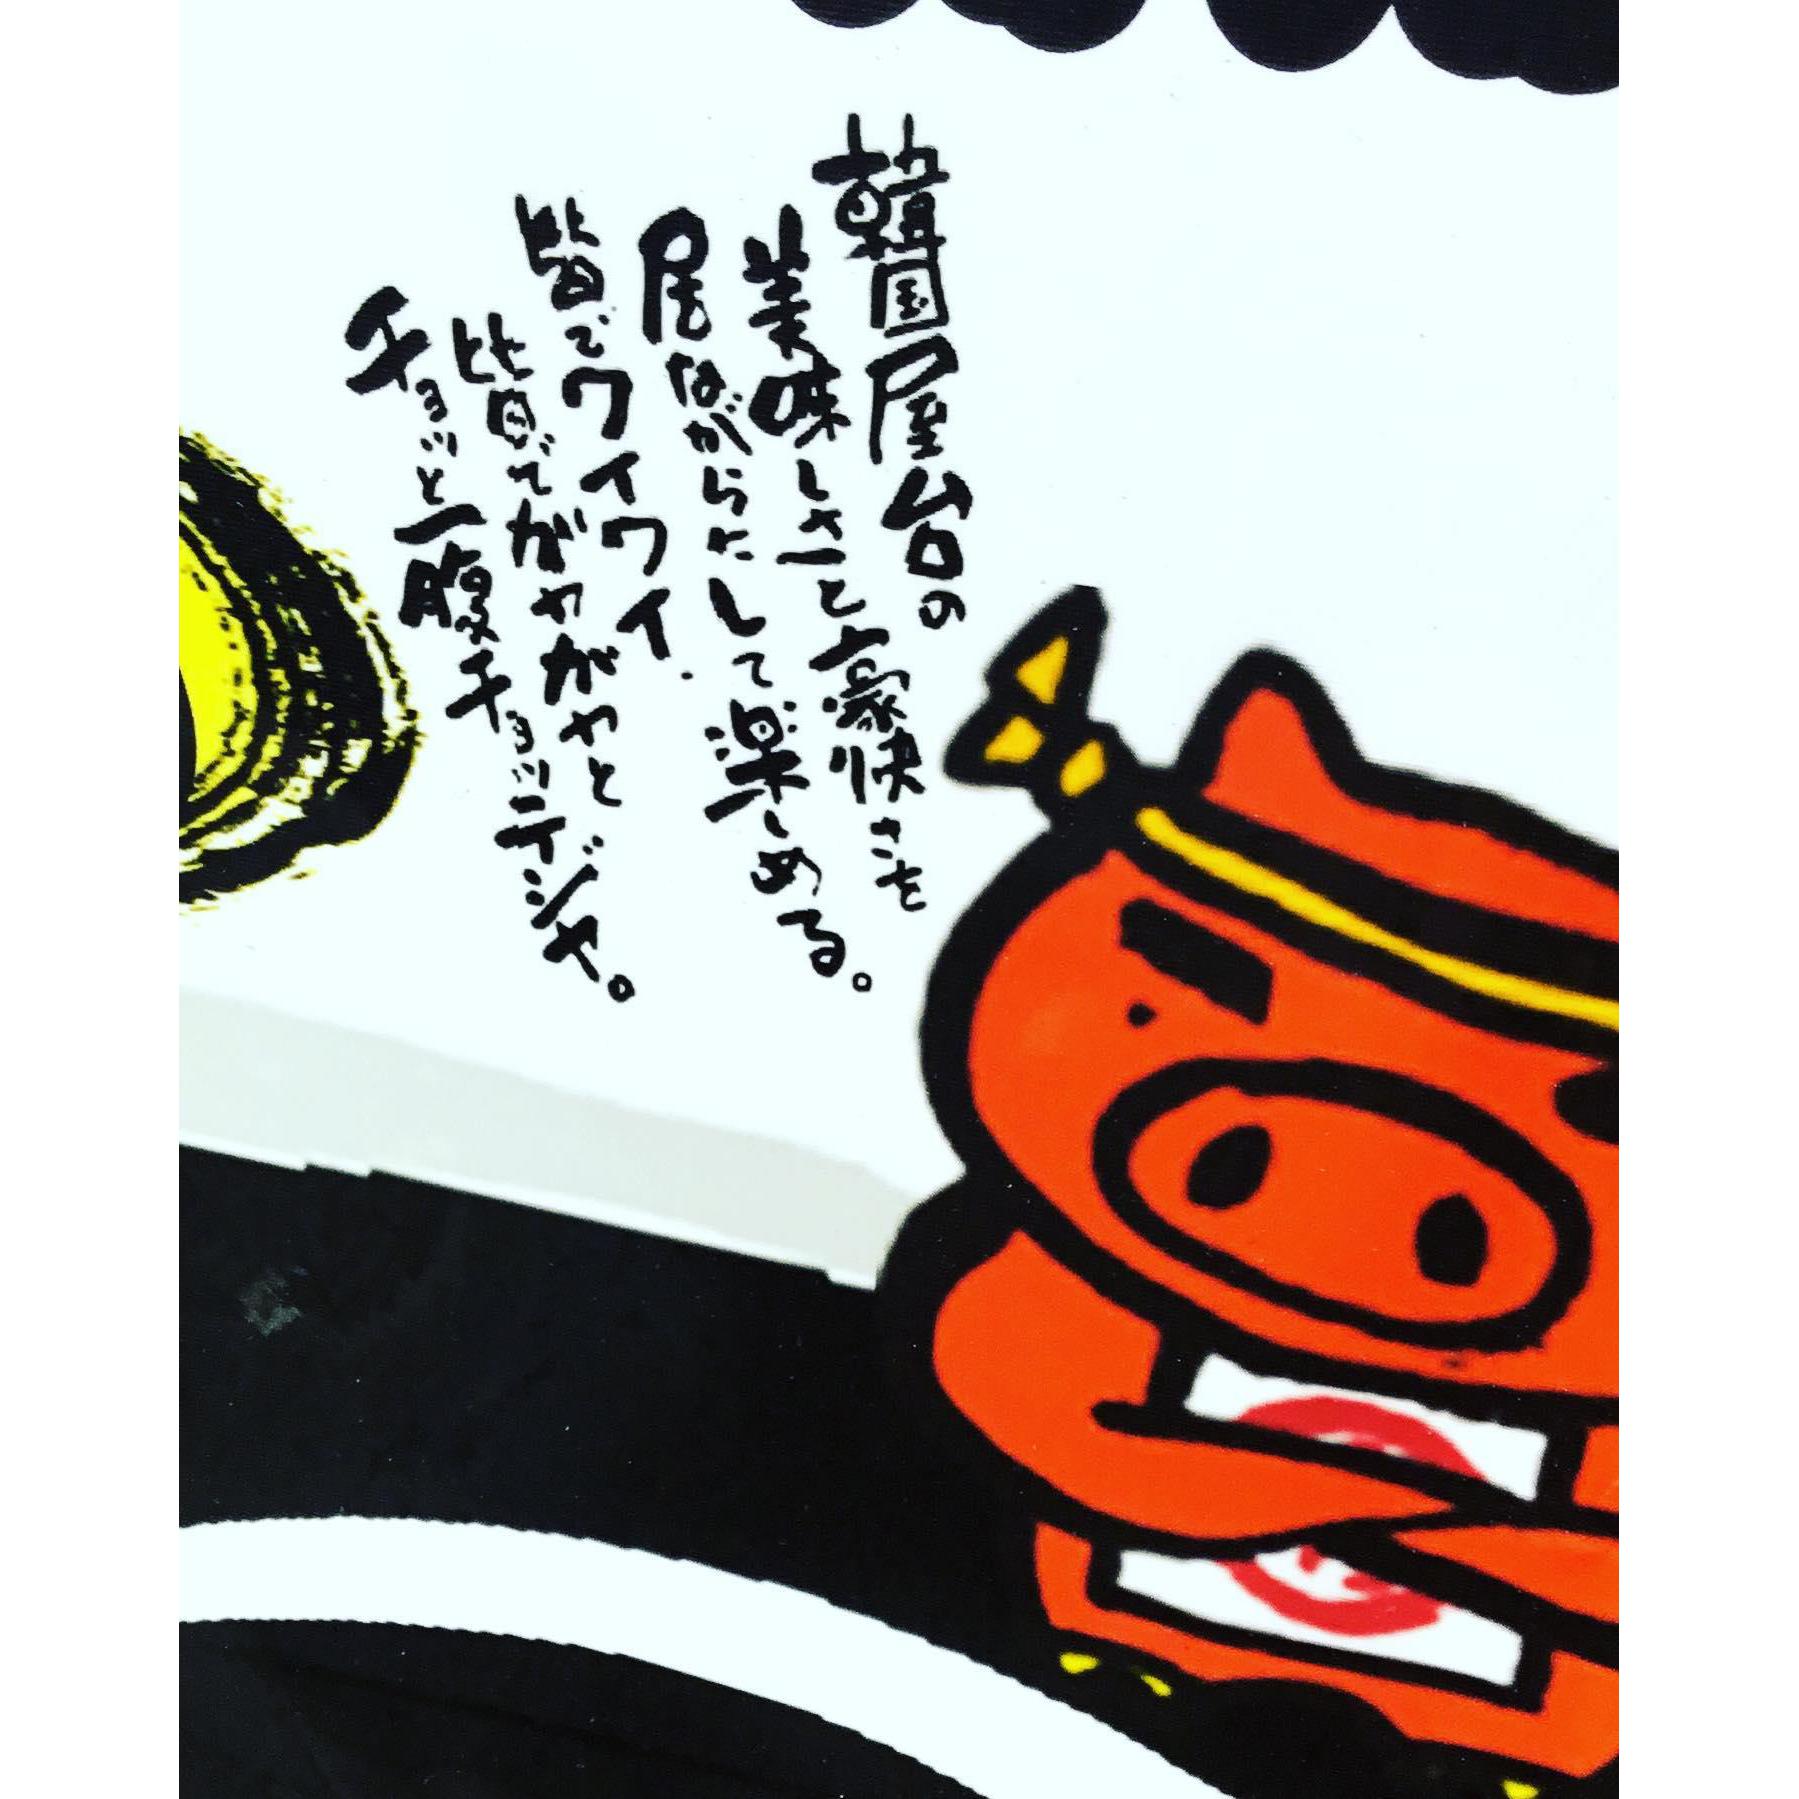 韓国屋台の
美味しさと豪快さを
居ながらにして楽しめる。
皆でワイワイ.
皆でガヤガヤと
チョッと一腹チョッテジャ。